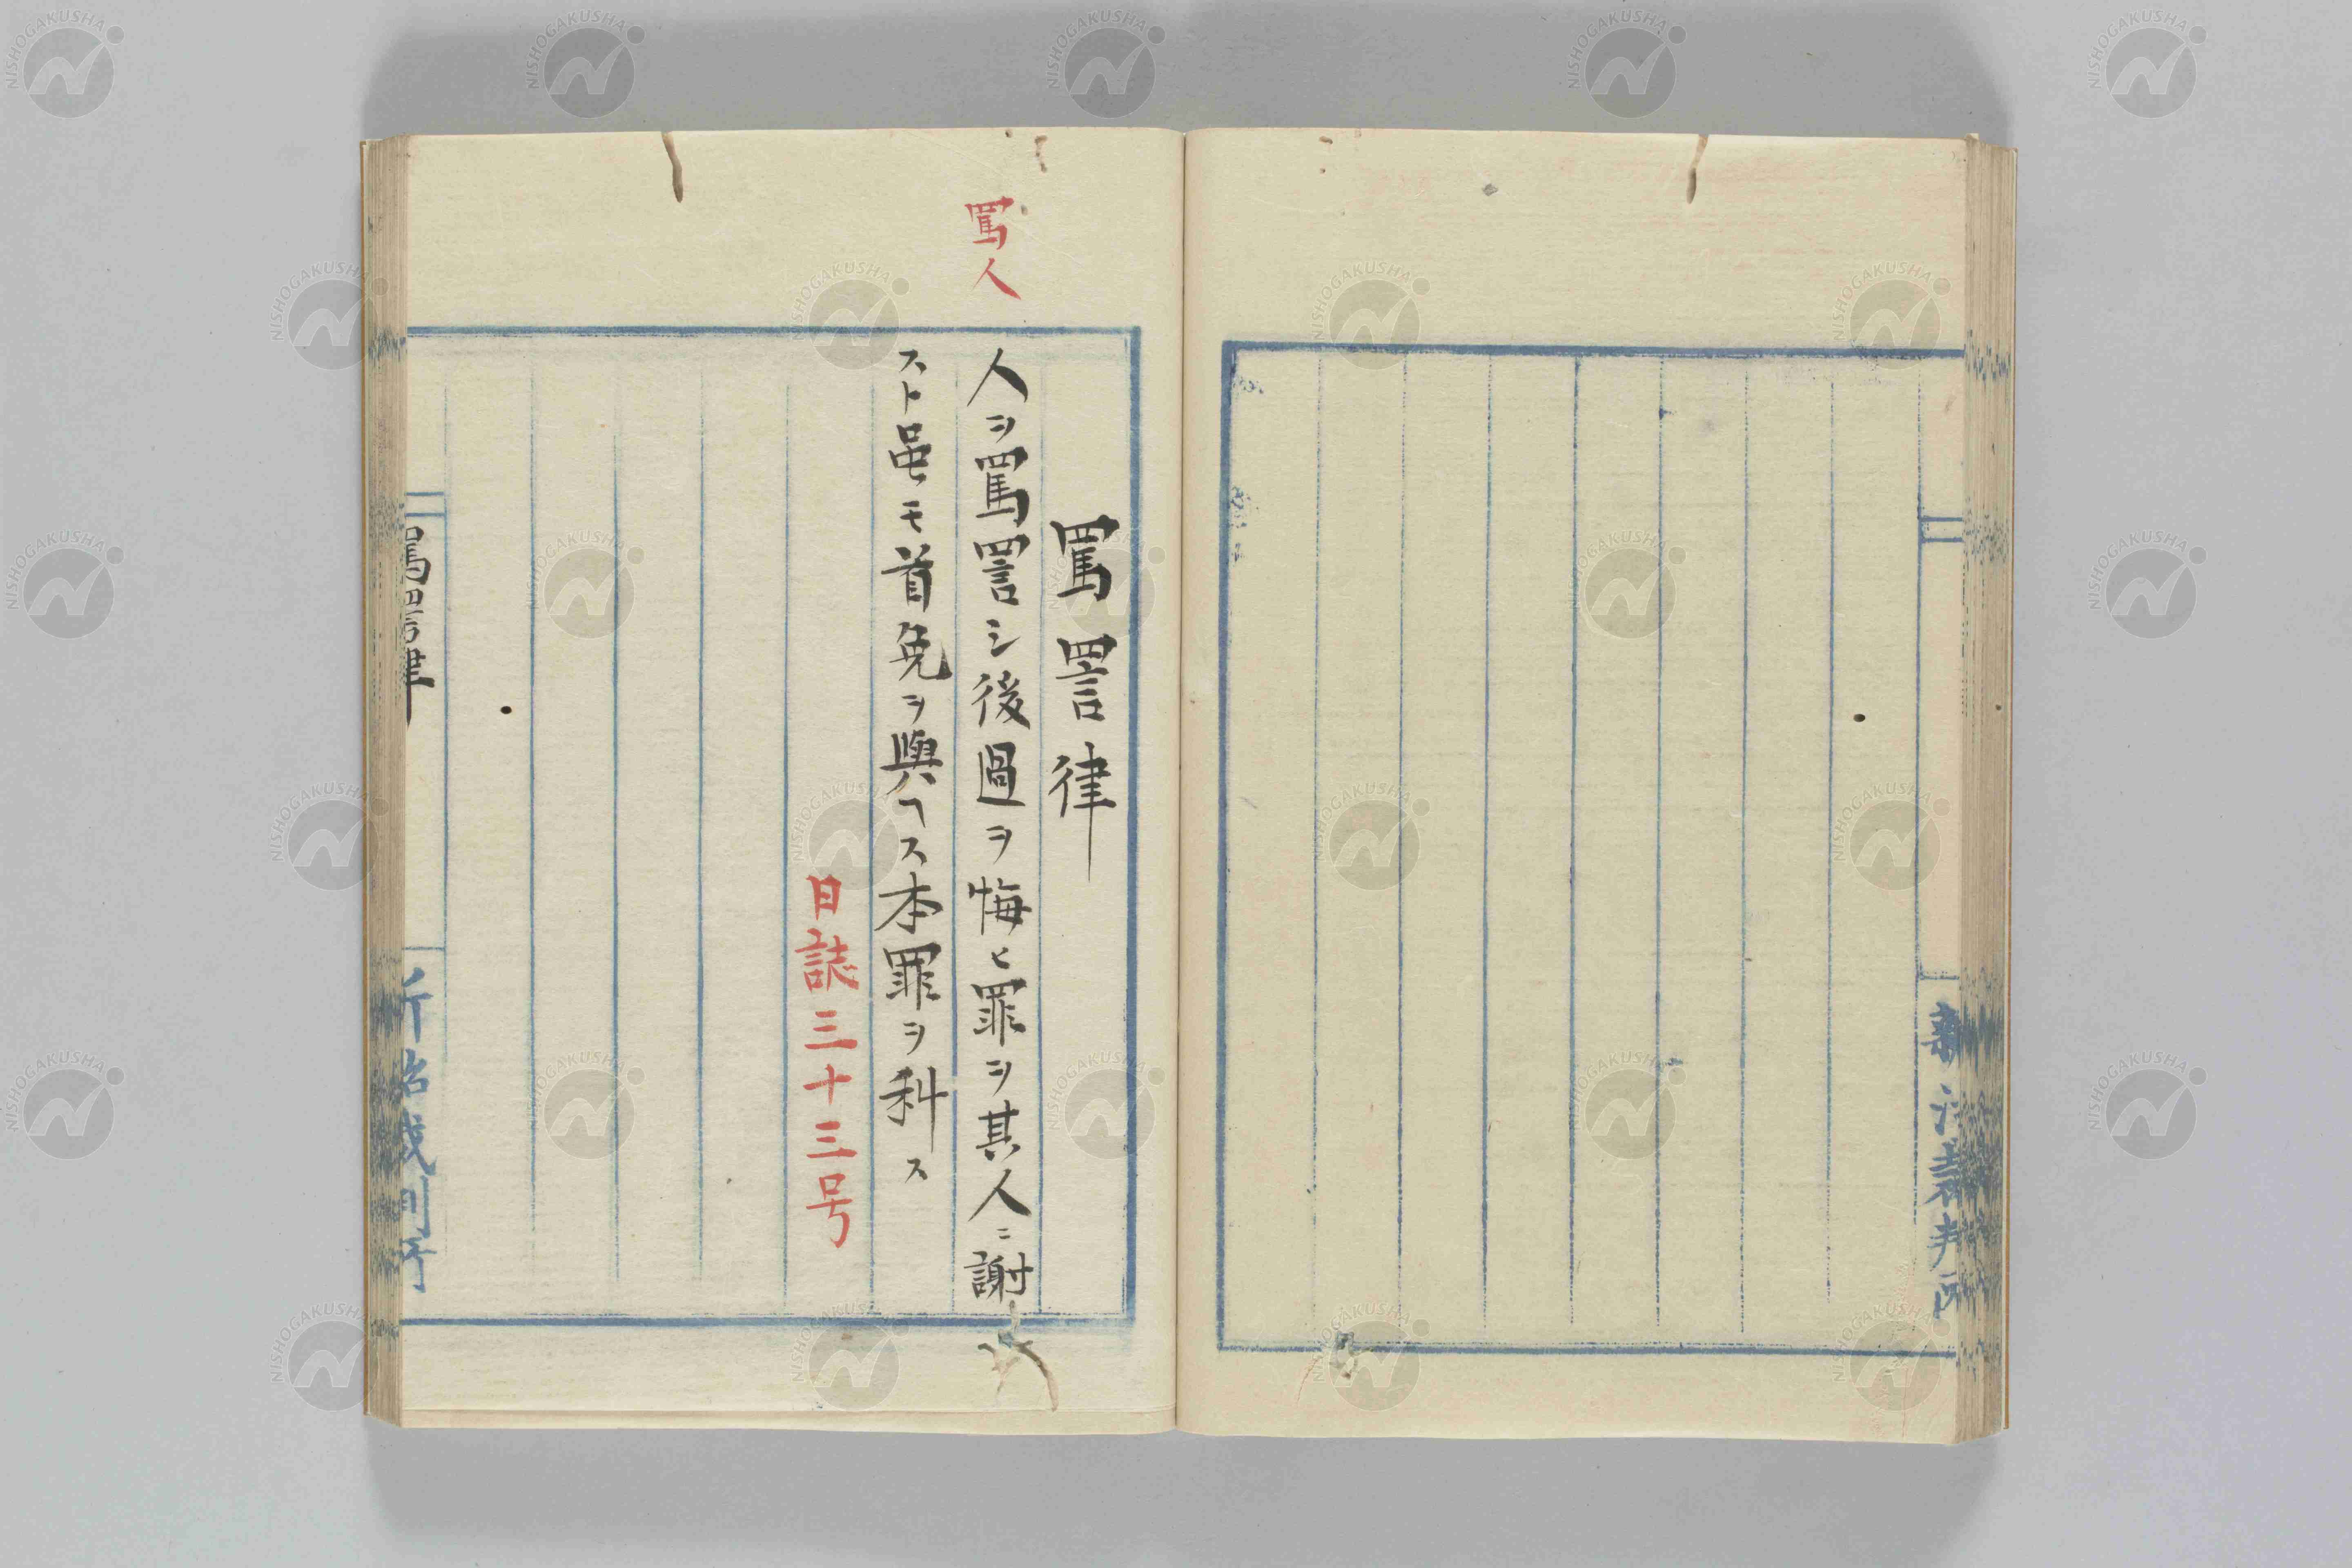 罵詈律
罵人
人ヲ罵詈シ後過ヲ悔ヒ罪ヲ其人ニ謝
スト虽モ首免ヲ與ヘス本罪ヲ科ス
日誌三十三号
罵詈律
NISHOGAKUSHA